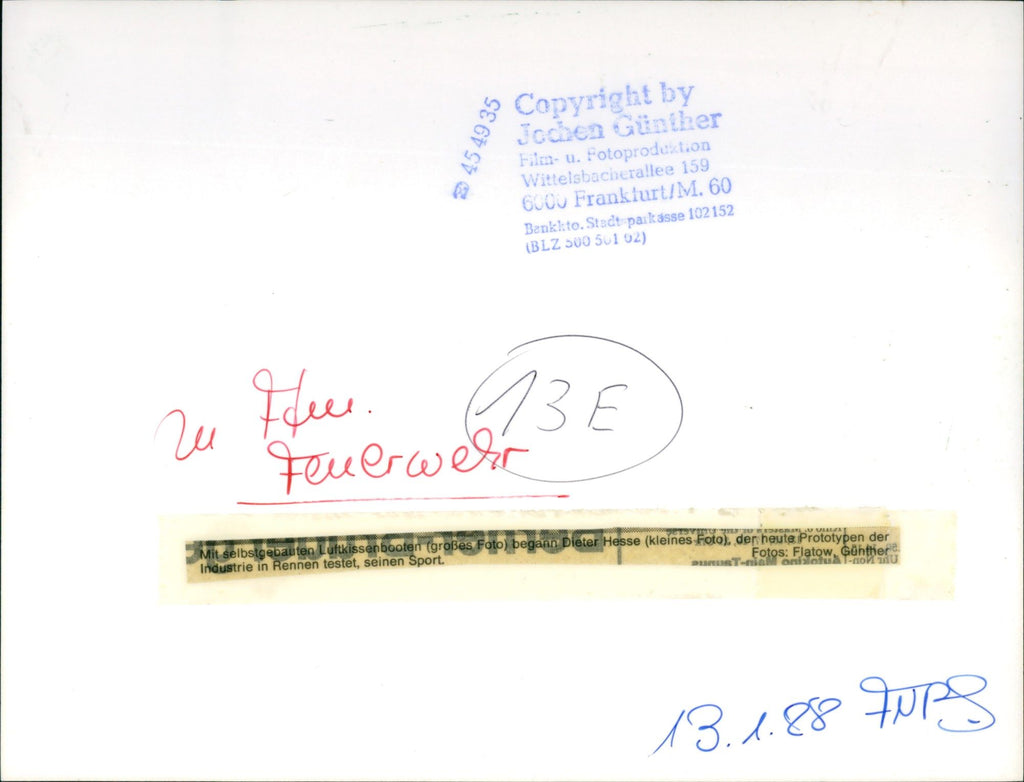 ☎ 45 49 35
Copyright by
Jochen Günther
Film- u. Fotoproduktion
Wittelsbacherallee 159
6000 Frankfurt/M. 60
Bankkto. Stadtsparkasse 102152
(BLZ 500 501 02)
13 E
zu
Feuerwehr
Mit selbstgebauten Luftkissenbooten (großes Foto) begann Dieter Hesse (kleines Foto), der heute Prototypen der
Industrie in Rennen testet, seinen Sport. Fotos: Flatow, Günther
13.1.88 FNP